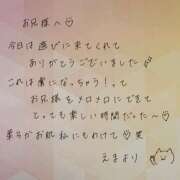 お兄様へ♡
今日は遊びに来てくれて
ありがとうございました
これは癖になっちゃう！って
お兄様をメロメロにできて
とっても楽しい時間だった〜♡
柔らかお肌私にもわけて♡笑
えまより